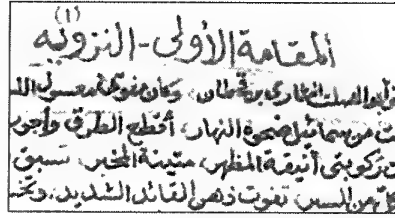 (١)
المقامة الأولى - النزوية
أبو الصلت الغاري بن قحطان، وكان مفوها معسول
من سمائل ضحوة النهار، أقطع الطرق وأجو
ركوبتي أنيقة المظهر، متينة المخبر، تسبق
من السير، تفوت ذهن القائد الشديد،